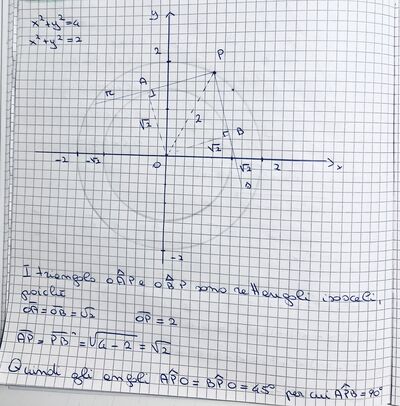 x²+y²=4
x²+y²=2
y
2
P
A
r
B
√2
2
√2
-2
-√2
O
√2
2
x
s
-2
I triangolo OÂP e OB̂P sono rettangoli isosceli,
poiché
OA=OB=√2 OP=2
AP=PB=√4-2=√2
Quindi gli angoli AP̂O=BP̂O=45° per cui AP̂B=90°